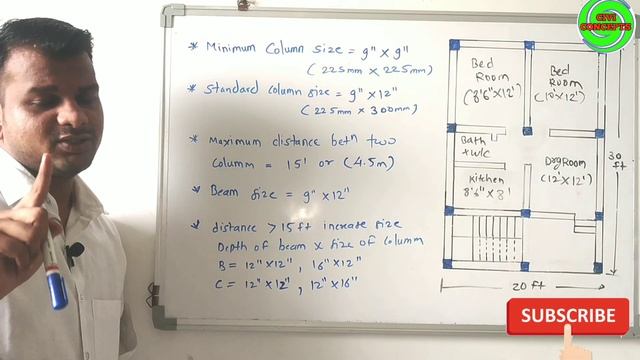 * Minimum Column size = 9" x 9"
(225mm x 225mm)
* Standard column size = 9" x 12"
(225mm x 300mm)
* Maximum distance betn two
Column = 15' or (4.5m)
* Beam size = 9" x 12"
* distance > 15 ft increase size
Depth of beam x size of column
B = 12" x 12", 16" x 12"
C = 12" x 12", 12" x 16"
CIVI
CONCEPTS
Bed
Room
(8'6" x 12')
Bed
Room
(10' x 12')
Bath
+ w/c
Kitchen
8'6" x 8'
Dig Room
(12' x 12')
30
ft
20 ft
SUBSCRIBE